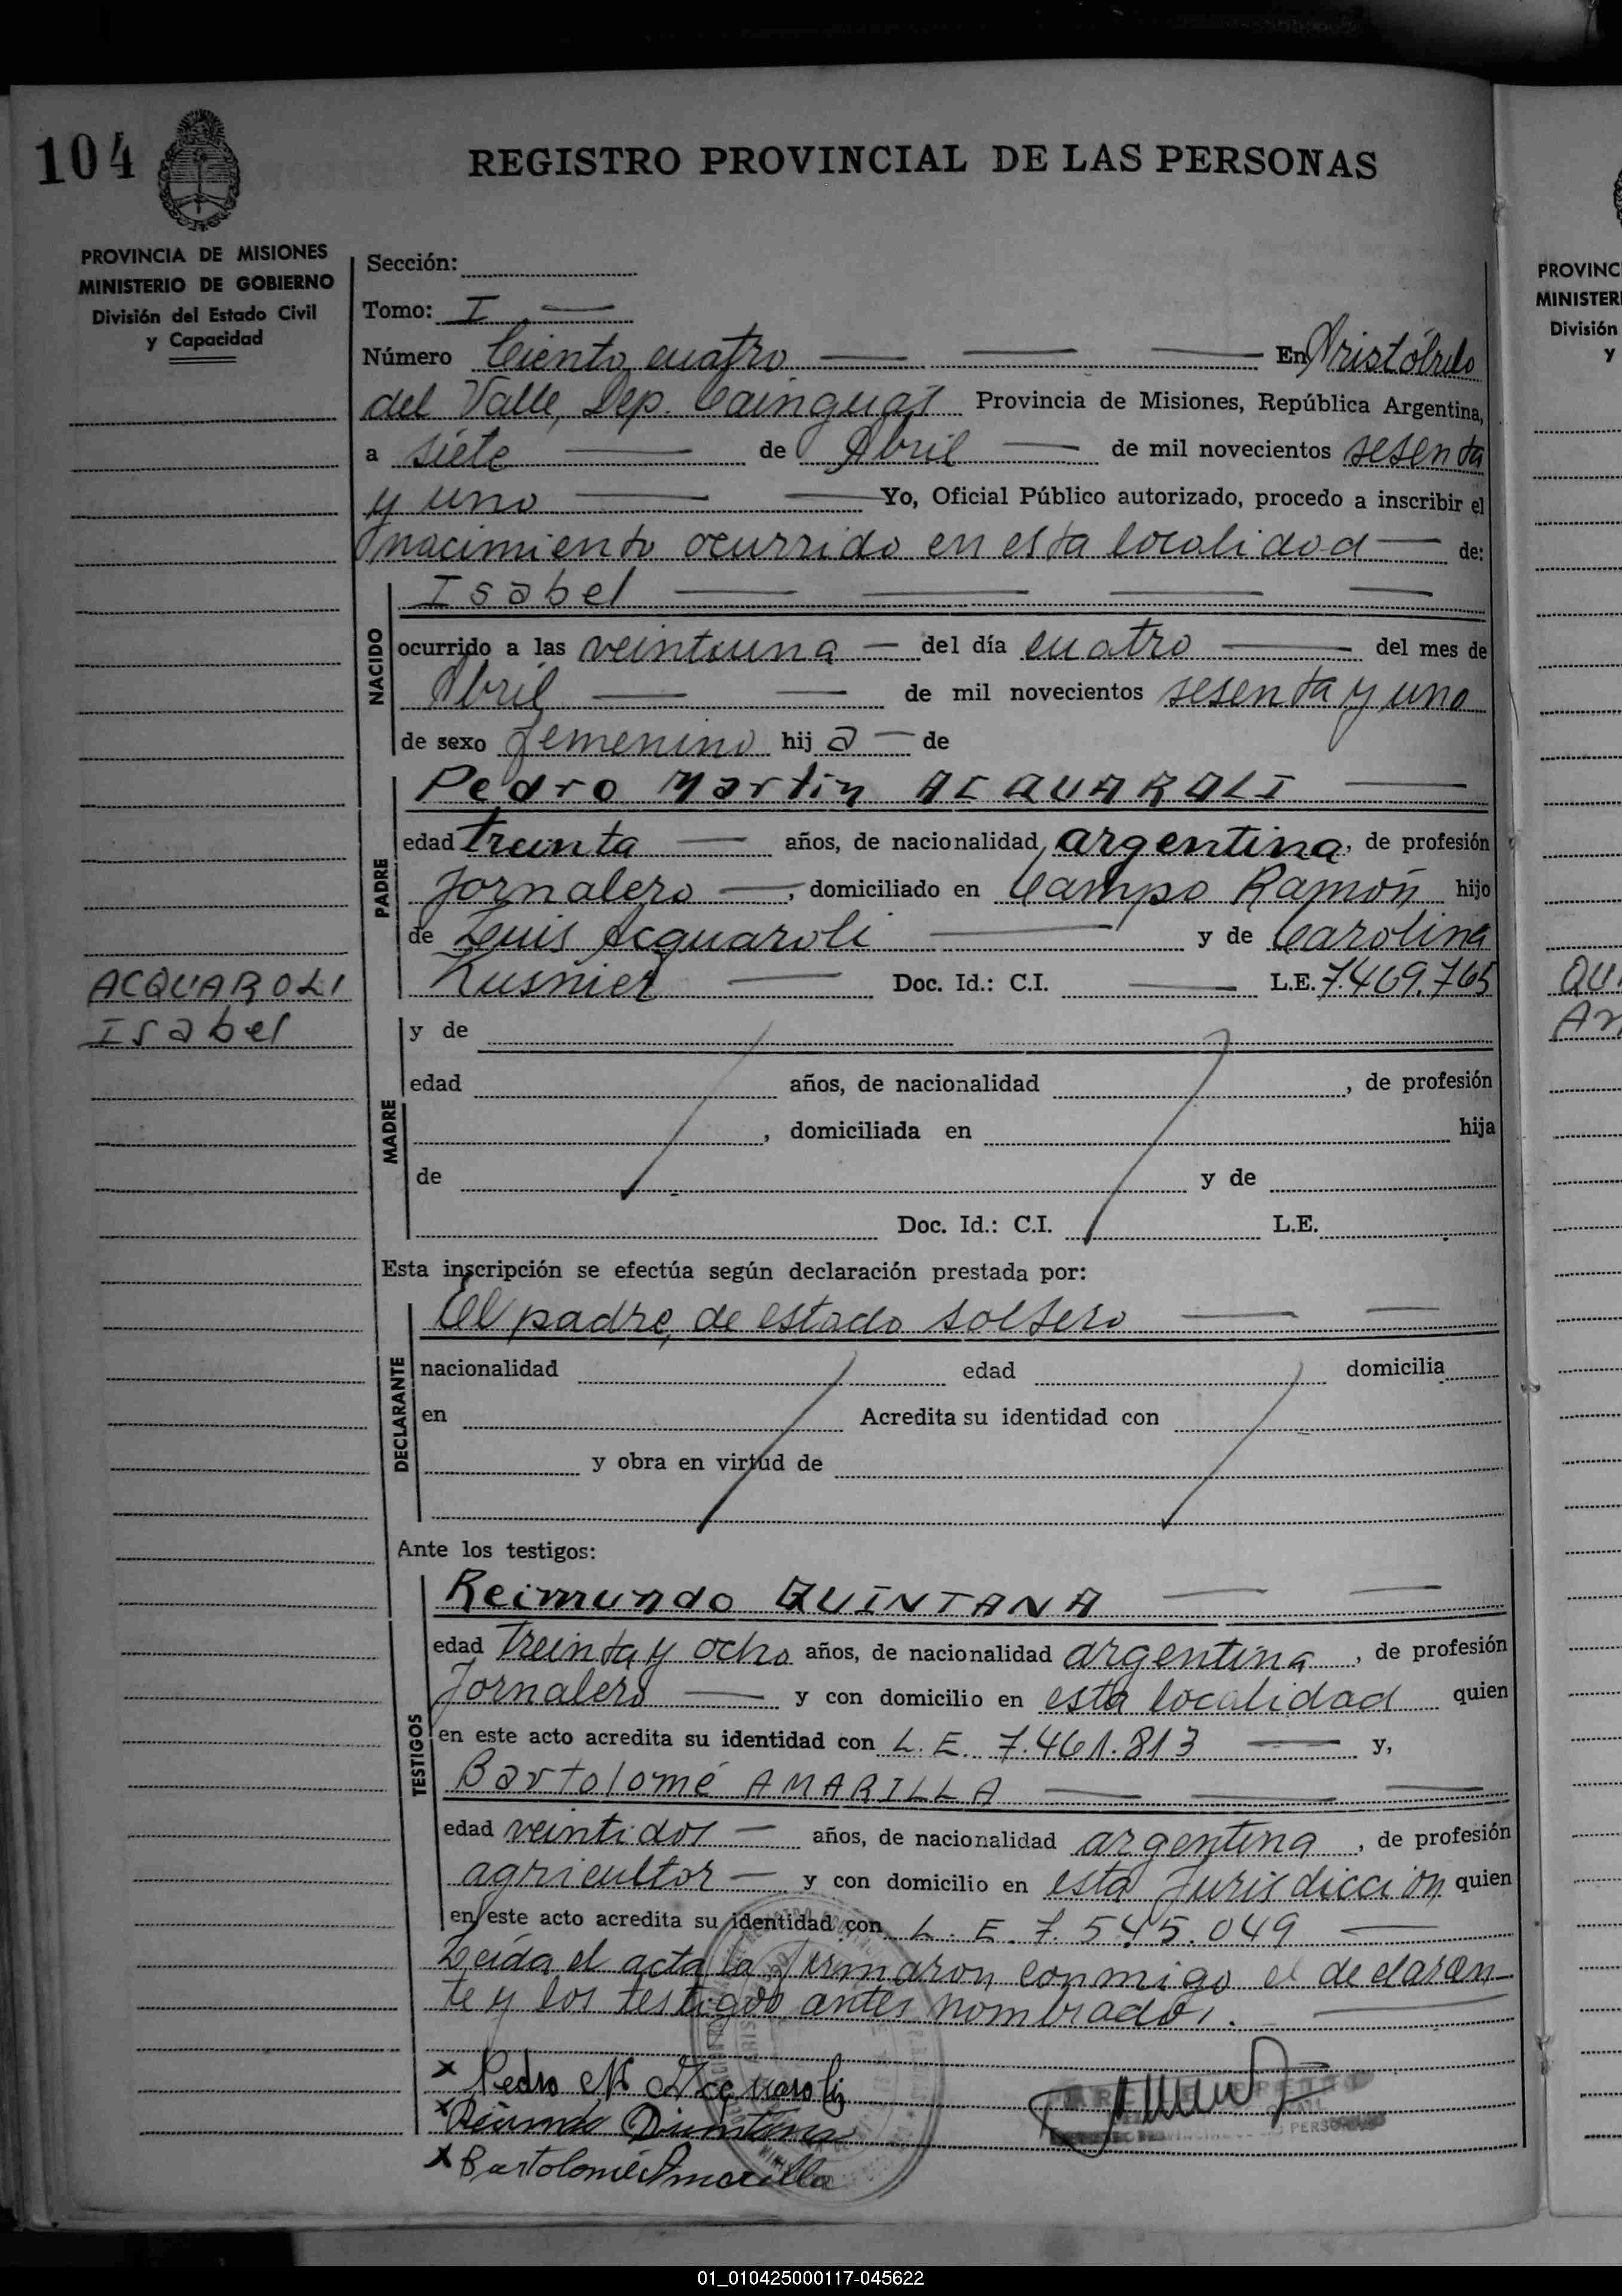 104
REGISTRO PROVINCIAL DE LAS PERSONAS
PROVINCIA DE MISIONES
MINISTERIO DE GOBIERNO
División del Estado Civil
y Capacidad
Sección:
Tomo: I
Número Ciento cuatro En Aristóbulo
del Valle, Dep. Cainguás Provincia de Misiones, República Argentina,
a siete de Abril de mil novecientos sesenta
y uno Yo, Oficial Público autorizado, procedo a inscribir el
nacimiento ocurrido en esta localidad de:
NACIDO
Isabel
ocurrido a las veintiuna del día cuatro del mes de
Abril de mil novecientos sesenta y uno
de sexo femenino hij a de
PADRE
Pedro Martin ACQUAROLI
edad treinta años, de nacionalidad argentina, de profesión
Jornalero, domiciliado en Campo Ramón hijo
de Luis Acquaroli y de Carolina
Kusnier Doc. Id.: C.I. L.E. 7.469.765
ACQUAROLI
Isabel
MADRE
y de
edad años, de nacionalidad , de profesión
, domiciliada en hija
de y de
Doc. Id.: C.I. L.E.
Esta inscripción se efectúa según declaración prestada por:
DECLARANTE
El padre, de estado soltero
nacionalidad edad domicilia
en Acredita su identidad con
y obra en virtud de
Ante los testigos:
TESTIGOS
Reimundo QUINTANA
edad treinta y ocho años, de nacionalidad argentina, de profesión
Jornalero y con domicilio en esta localidad quien
en este acto acredita su identidad con L. E. 7.461.813 y,
Bartolomé AMARILLA
edad veintidos años, de nacionalidad argentina, de profesión
agricultor y con domicilio en esta Jurisdicción quien
en este acto acredita su identidad con L. E. 7.545.049
Leída el acta la firmaron conmigo el declaran-
te y los testigos antes nombrados.
x Pedro M Acquaroli
x Reimundo Quintana
x Bartolomé Amarilla
PROVINC
MINISTER
División
y
QU
An
01_010425000117-045622